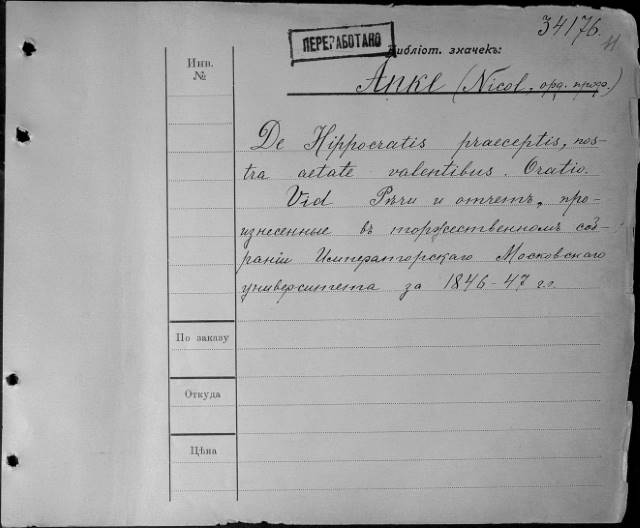 34176.
ПЕРЕРАБОТАНО
Библіот. значекъ:
Инв.
№
Anke (Nicol. орд. проф.)
De Hippocratis praeceptis, nos-
tra aetate valentibus. Oratio.
Vid Рѣчи и отчетъ, про-
изнесенные въ торжественномъ соб-
раніи Императорскаго Московскаго
университета за 1846-47 гг.
По заказу
Откуда
Цѣна